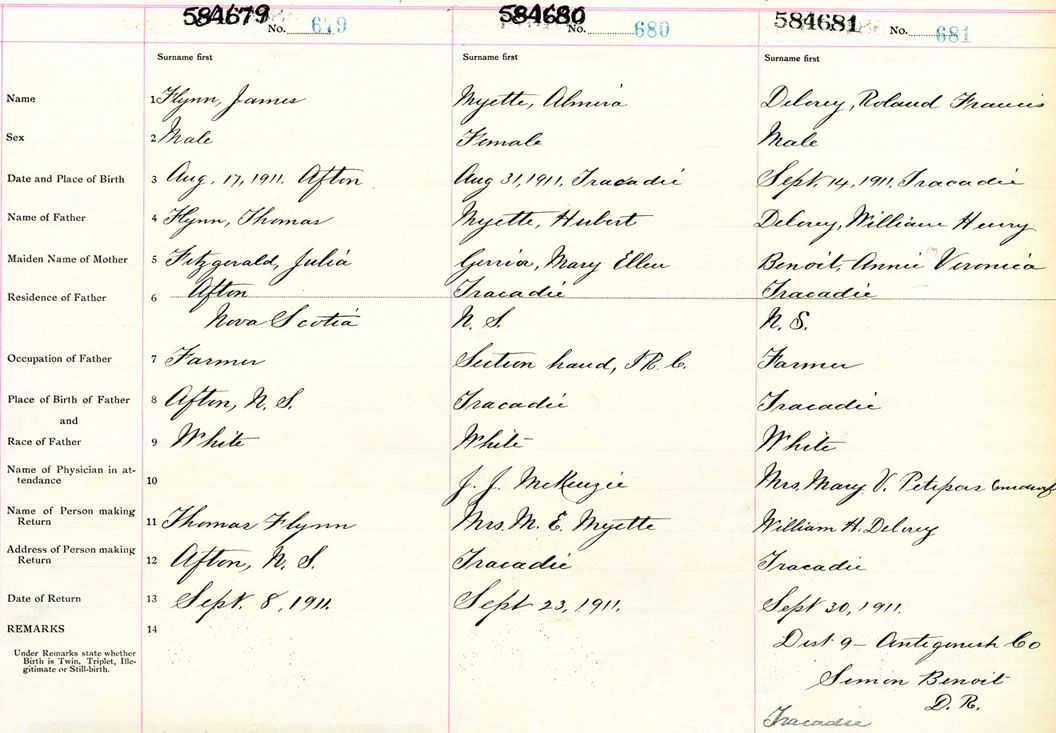 584679 No. 679 584680 No. 680 584681 No. 681
Surname first Surname first Surname first
Name 1 Flynn, James Myette, Almira Delorey, Roland Francis
Sex 2 Male Female Male
Date and Place of Birth 3 Aug. 17, 1911. Afton Aug 31, 1911, Tracadie Sept. 14, 1911, Tracadie
Name of Father 4 Flynn, Thomas Myette, Hubert Delorey, William Henry
Maiden Name of Mother 5 Fitzgerald, Julia Mary Ellen Benoit, Annie Veronica
Residence of Father 6 Afton Tracadie Tracadie
Nova Scotia N. S. N. S.
Occupation of Father 7 Farmer Section hand, Farmer
Place of Birth of Father 8 Afton, N. S. Tracadie Tracadie
and
Race of Father 9 White White White
Name of Physician in at-
tendance 10 J. J. McKenzie Mrs. Mary V. Petipas
Name of Person making
Return 11 Thomas Flynn Mrs. M. E. Myette William H. Delorey
Address of Person making
Return 12 Afton, N. S. Tracadie Tracadie
Date of Return 13 Sept. 8, 1911. Sept 23, 1911. Sept 30, 1911.
REMARKS 14 Dist 9 – Antigonish Co
Under Remarks state whether
Birth is Twin, Triplet, Ille-
gitimate or Still-birth.
Simon Benoit
D. R.
Tracadie